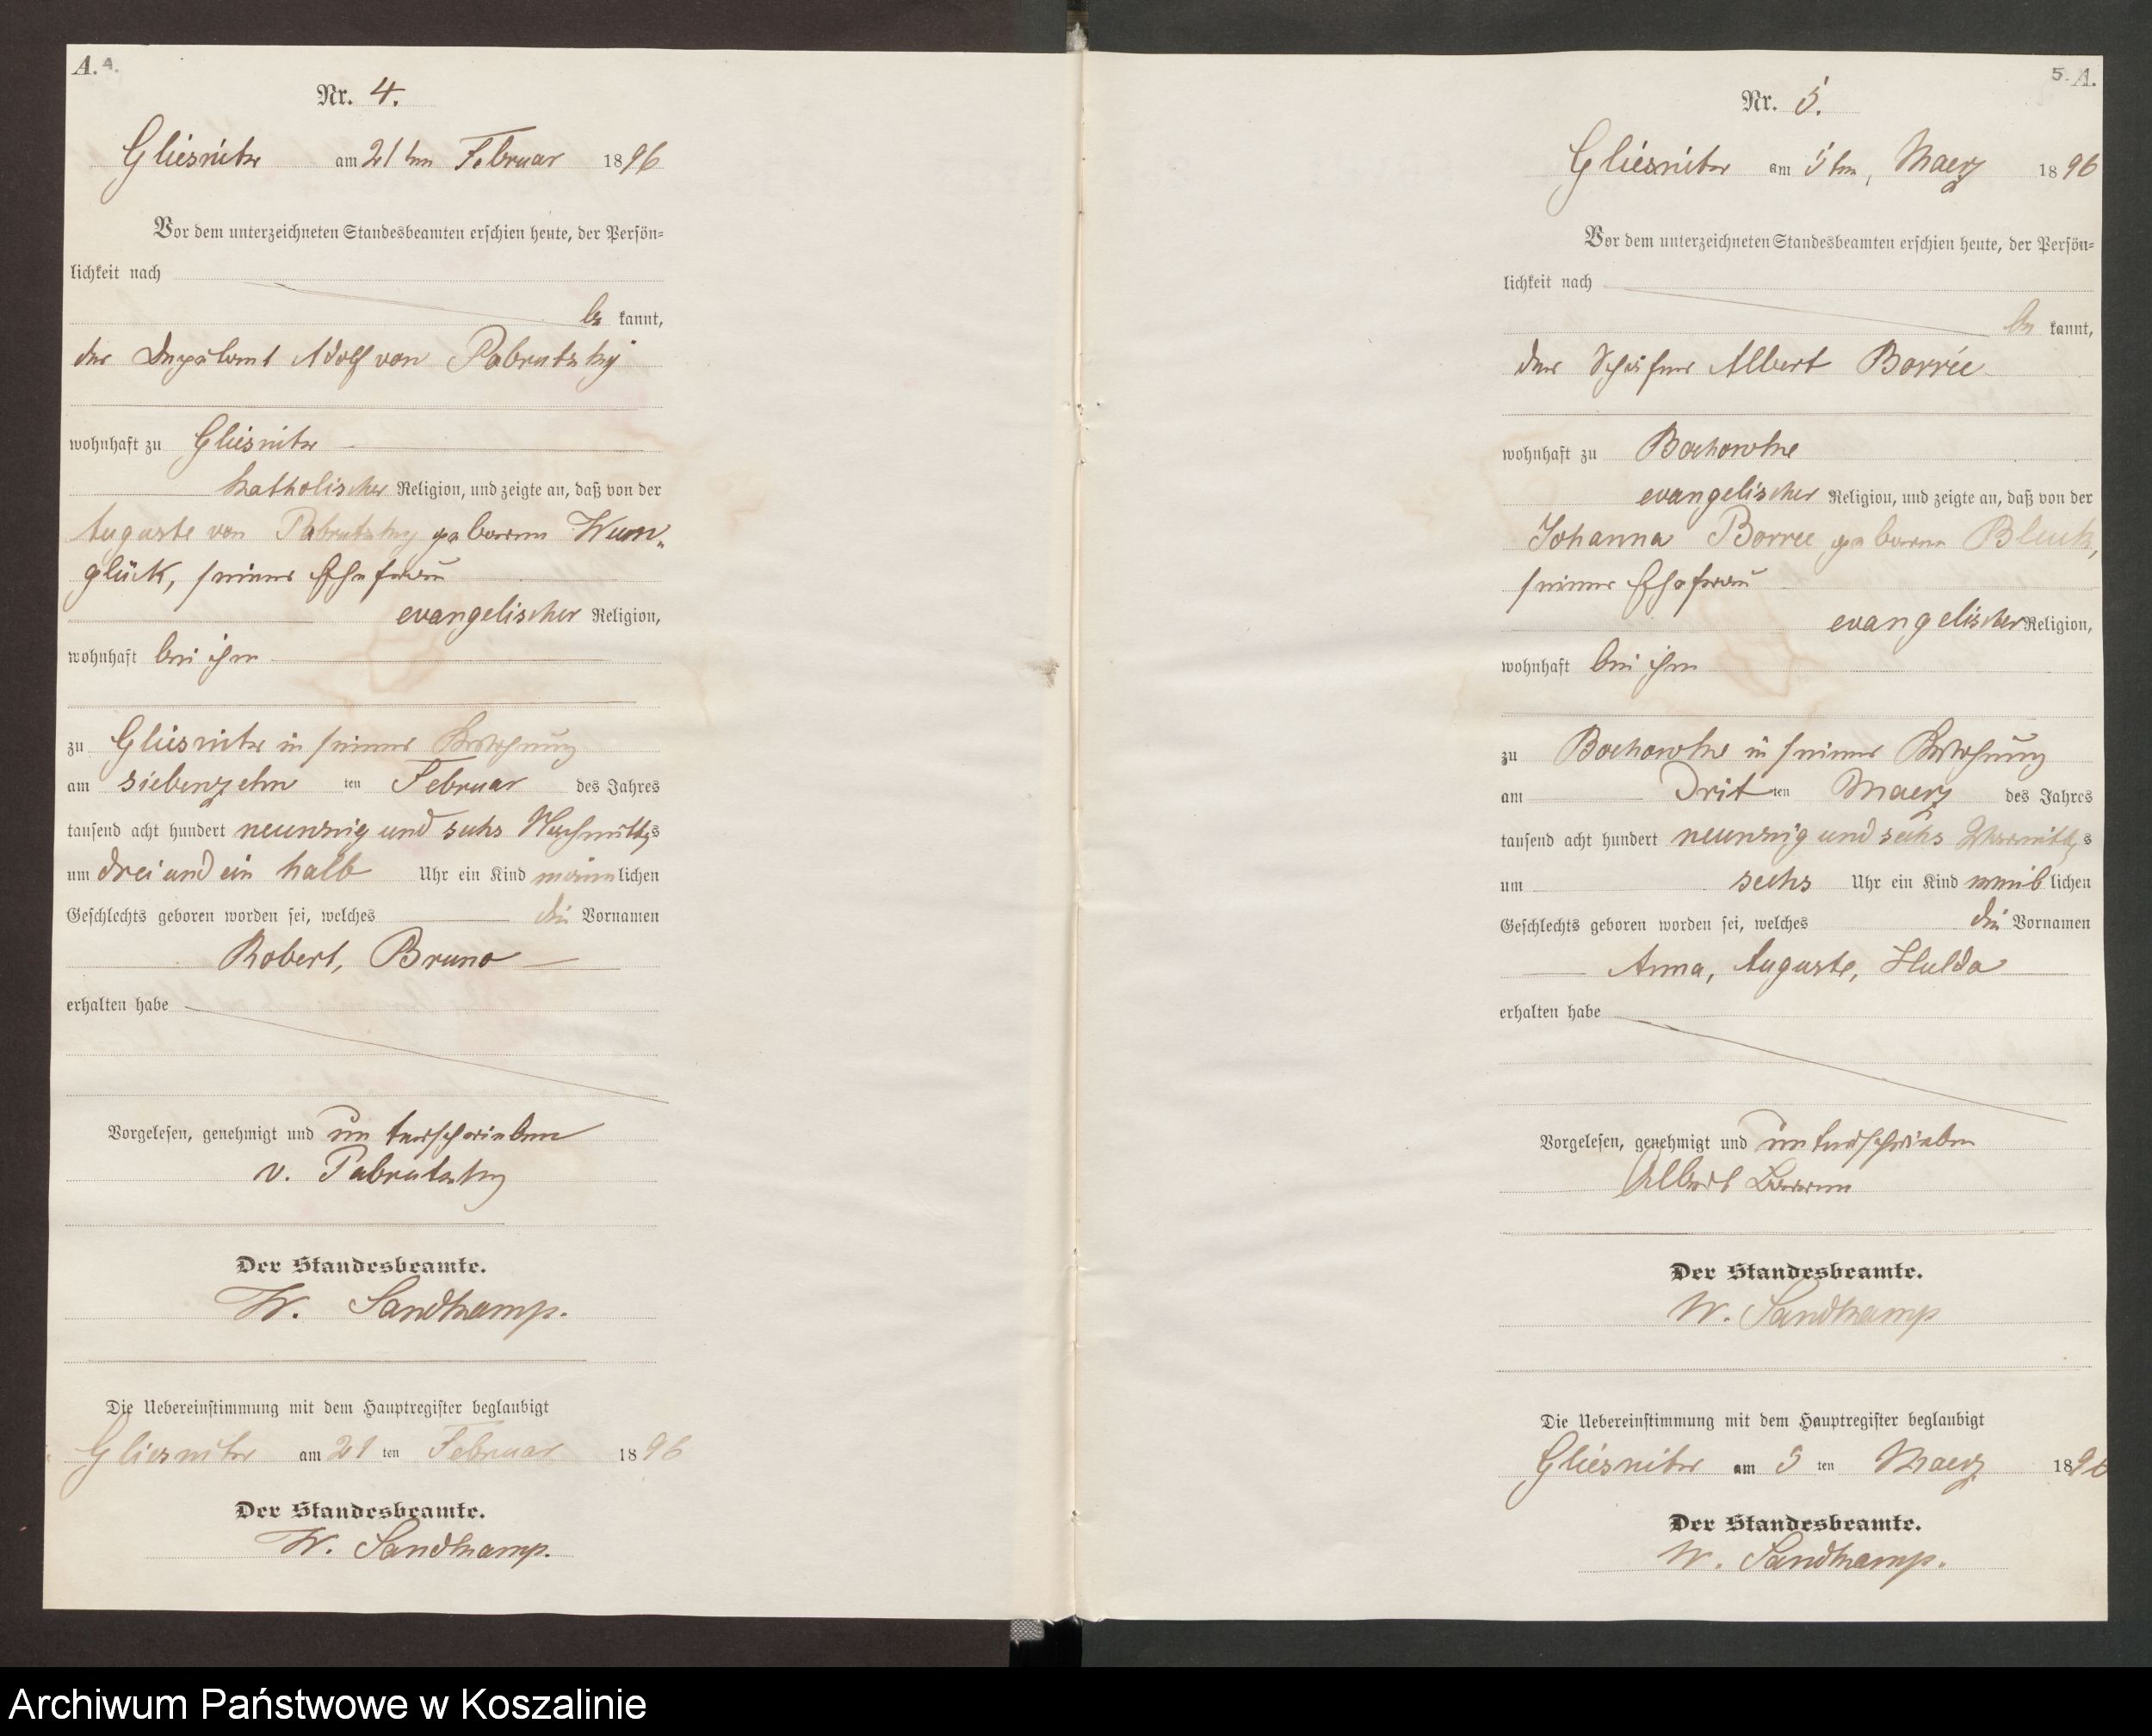 A. 4.
Nr. 4.
Gliesnitz am 21ten Februar 1896
Vor dem unterzeichneten Standesbeamten erschien heute, der Persön=
lichkeit nach
be kannt,
der Adolf von Pabrutzky
wohnhaft zu Gliesnitz
katholischer Religion, und zeigte an, daß von der
Auguste von Pabrutzky geborenen Wun„
glück, seiner Ehefrau
evangelischer Religion,
wohnhaft bei ihm
zu Gliesnitz in seiner Wohnung
am siebenzehn ten Februar des Jahres
tausend acht hundert neunzig und sechs Nachmittgs
um drei und ein halb Uhr ein Kind männlichen
Geschlechts geboren worden sei, welches die Vornamen
Robert, Bruno
erhalten habe
Vorgelesen, genehmigt und unterschrieben
v. Pabrutzky
Der Standesbeamte.
W. Sandkamp.
Die Uebereinstimmung mit dem Hauptregister beglaubigt
Gliesnitz am 21 ten Februar 1896
Der Standesbeamte.
W. Sandkamp.
5. A.
Nr. 5.
Gliesnitz am 5ten, Maerz 1896
Vor dem unterzeichneten Standesbeamten erschien heute, der Persön=
lichkeit nach
be kannt,
der Schäfer Albert Borrée
wohnhaft zu Bochowke
evangelischer Religion, und zeigte an, daß von der
Johanna Borree geborne Bluck,
seiner Ehefrau
evangelischer Religion,
wohnhaft bei ihm
zu Bochowke in seiner Wohnung
am Drit ten Maerz des Jahres
tausend acht hundert neunzig und sechs Vormittgs
um sechs Uhr ein Kind weib lichen
Geschlechts geboren worden sei, welches die Vornamen
Anna, Auguste, Hulda
erhalten habe
Vorgelesen, genehmigt und unterschrieben
Albert Borree
Der Standesbeamte.
W. Sandkamp
Die Uebereinstimmung mit dem Hauptregister beglaubigt
Gliesnitz am 5 ten Maerz 1896
Der Standesbeamte.
W. Sandkamp.
Archiwum Państwowe w Koszalinie